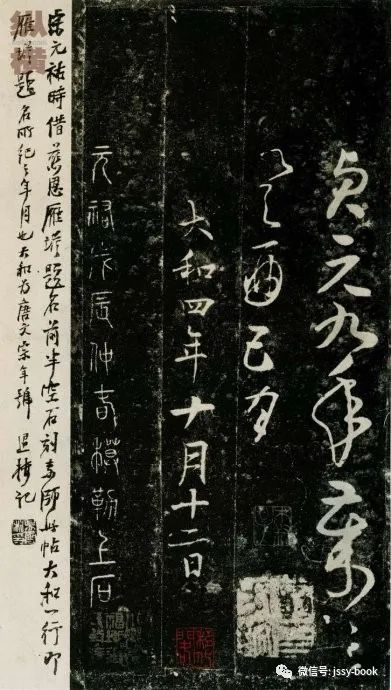 貞元九年歲在
癸酉五月
大和四年十月十二日
元祐戊辰仲春模勒上石
宋元祐時借慈恩雁塔題名前半空石刻素師此帖大和一行即
雁塔題名所紀之年月也大和為唐文宗年號 退樓記
纵横
微信号: jssy-book